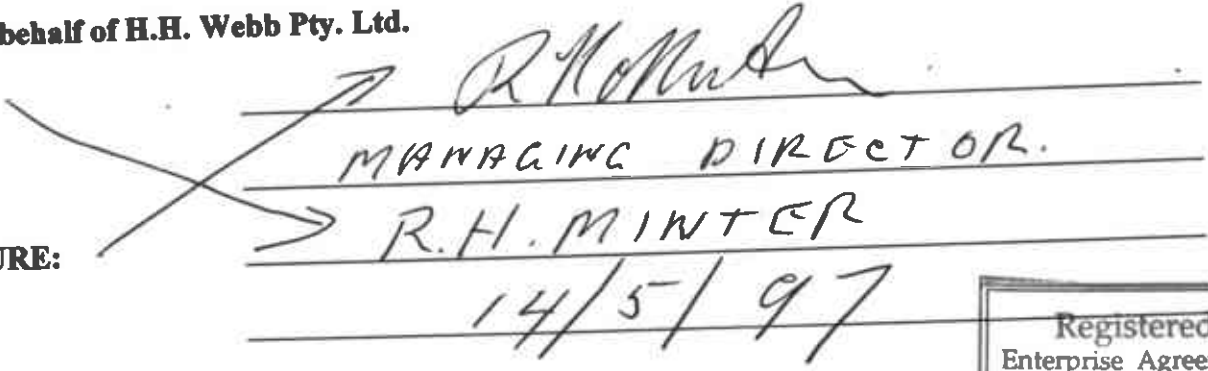 behalf of H.H. Webb Pty. Ltd.
MANAGING DIRECTOR.
R.H. MINTER
URE:
14/5/97
Registered
Enterprise Agree